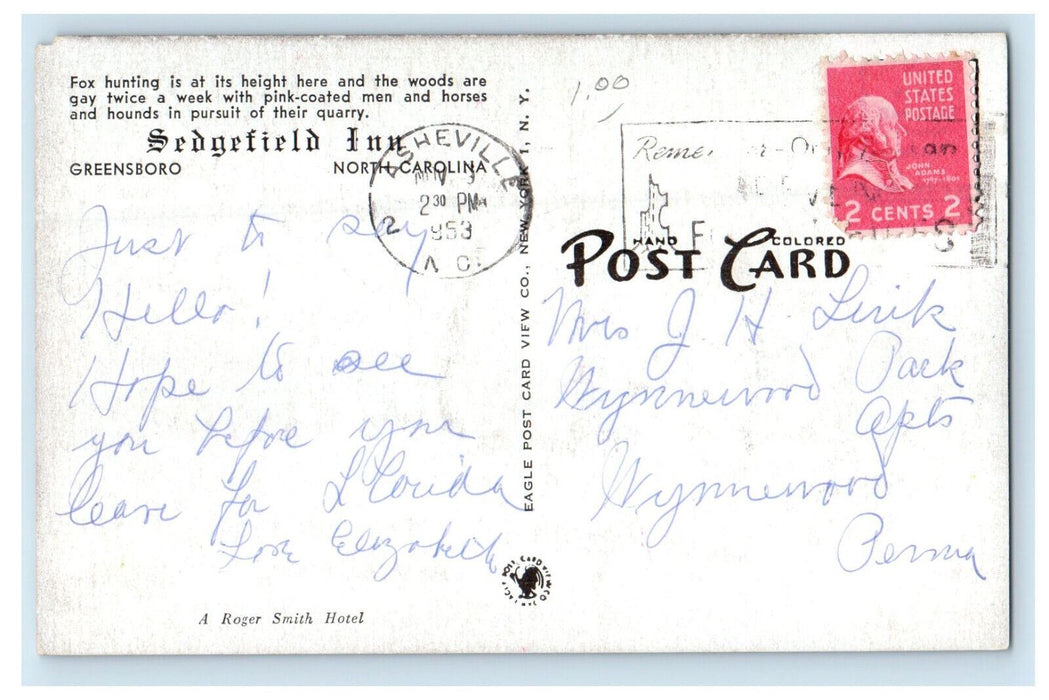 Fox hunting is at its height here and the woods are
gay twice a week with pink-coated men and horses
and hounds in pursuit of their quarry.
Sedgefield Inn
GREENSBORO NORTH CAROLINA
ASHEVILLE
2 30 PM
1953
N.C.
2
1.00
UNITED
STATES
POSTAGE
JOHN
ADAMS
1797-1801
2 CENTS 2
HAND COLORED
POST CARD
EAGLE POST CARD VIEW CO., NEW YORK 1, N. Y.
Just to say
Hello!
Hope to see
you before you
leave for Florida
Love Elizabeth
Mrs J. H. Link
Wynnewood Park
Apts
Wynnewood
Penna
A Roger Smith Hotel